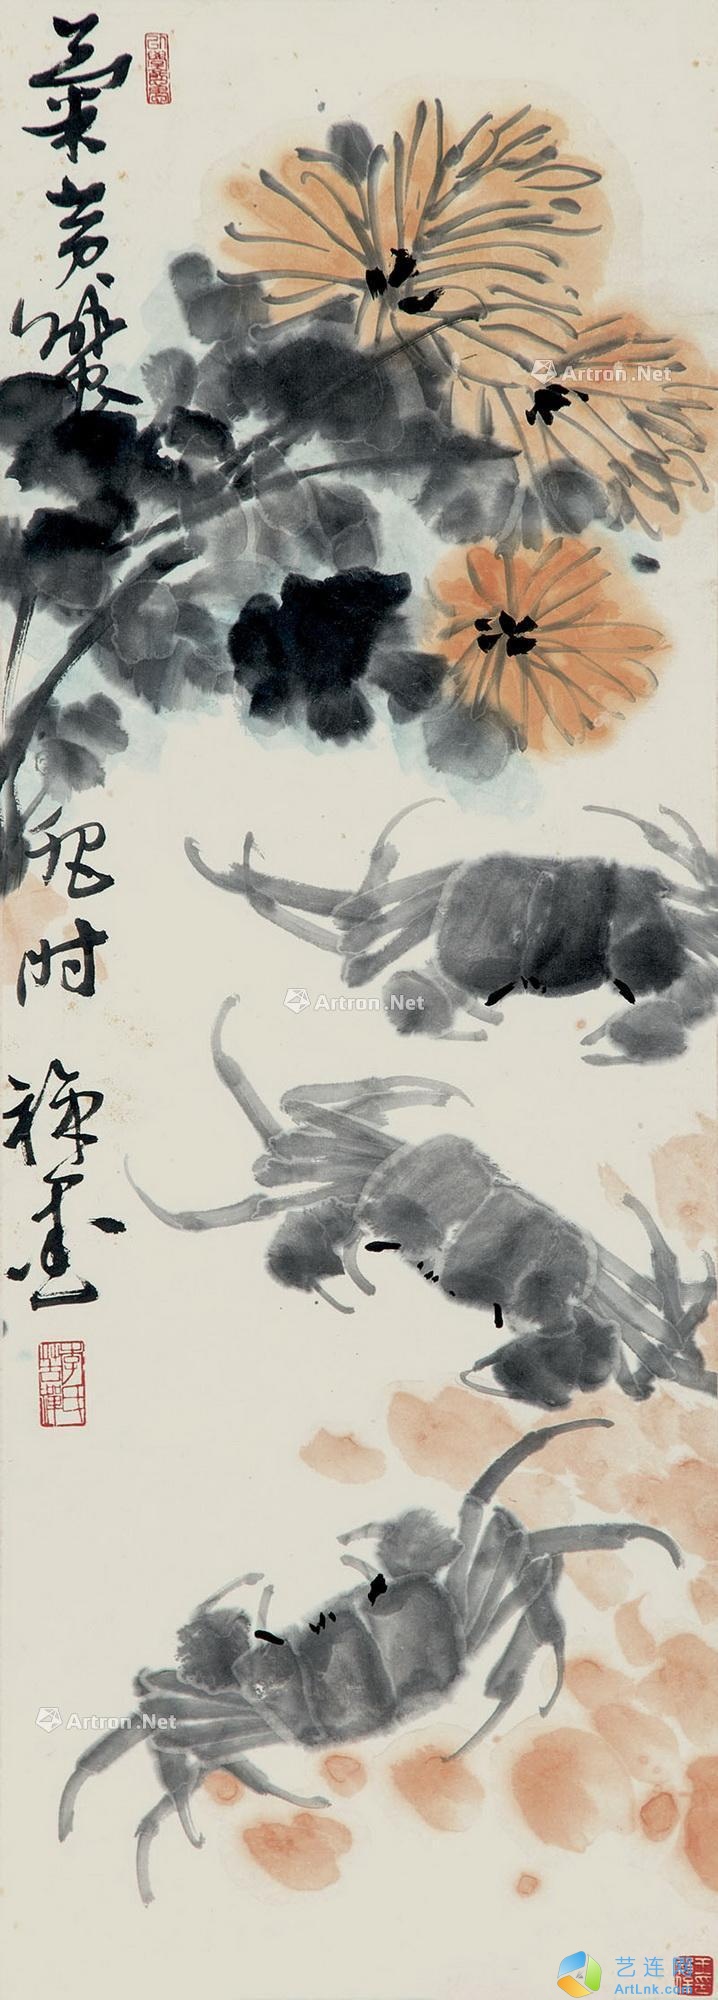 菊黄蟹肥时
禅画
李氏苦禅
Artron.Net
Artron.Net
Artron.Net
艺连网
ArtLnk.com